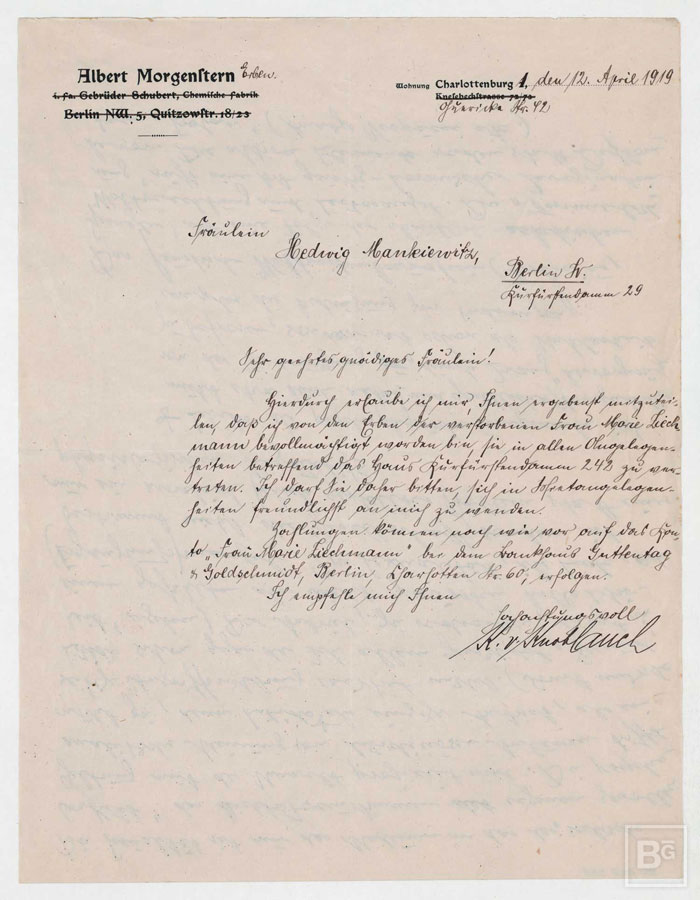 Albert Morgenstern Erben.
i. Fa. Gebrüder Schubert, Chemische Fabrik
Berlin NW. 5, Quitzowstr. 18/23
Wohnung Charlottenburg 1, den 12. April 1919
Knesebeckstrasse 72/73
Guericke Str. 42
Fräulein
Hedwig Mankiewitz,
Berlin W.
Kurfürstendamm 29
Sehr geehrtes gnädiges Fräulein!
Hierdurch erlaube ich mir, Ihnen ergebenst mitzutei-
len, daß ich von den Erben der verstorbenen Frau Marie Liech
mann bevollmächtigt worden bin, sie in allen Angelegen-
heiten betreffend das Haus Kurfürstendamm 242 zu ver-
treten. Ich darf Sie daher bitten, sich in Mietangelegen-
heiten freundlichst an mich zu wenden.
Zahlungen können nach wie vor auf das Kon-
to „Frau Marie Liechmann" bei dem Bankhaus Guttentag
& Goldschmidt, Berlin, Charlotten Str. 60, erfolgen.
Ich empfehle mich Ihnen
hochachtungsvoll
K. v. Knoblauch
BG